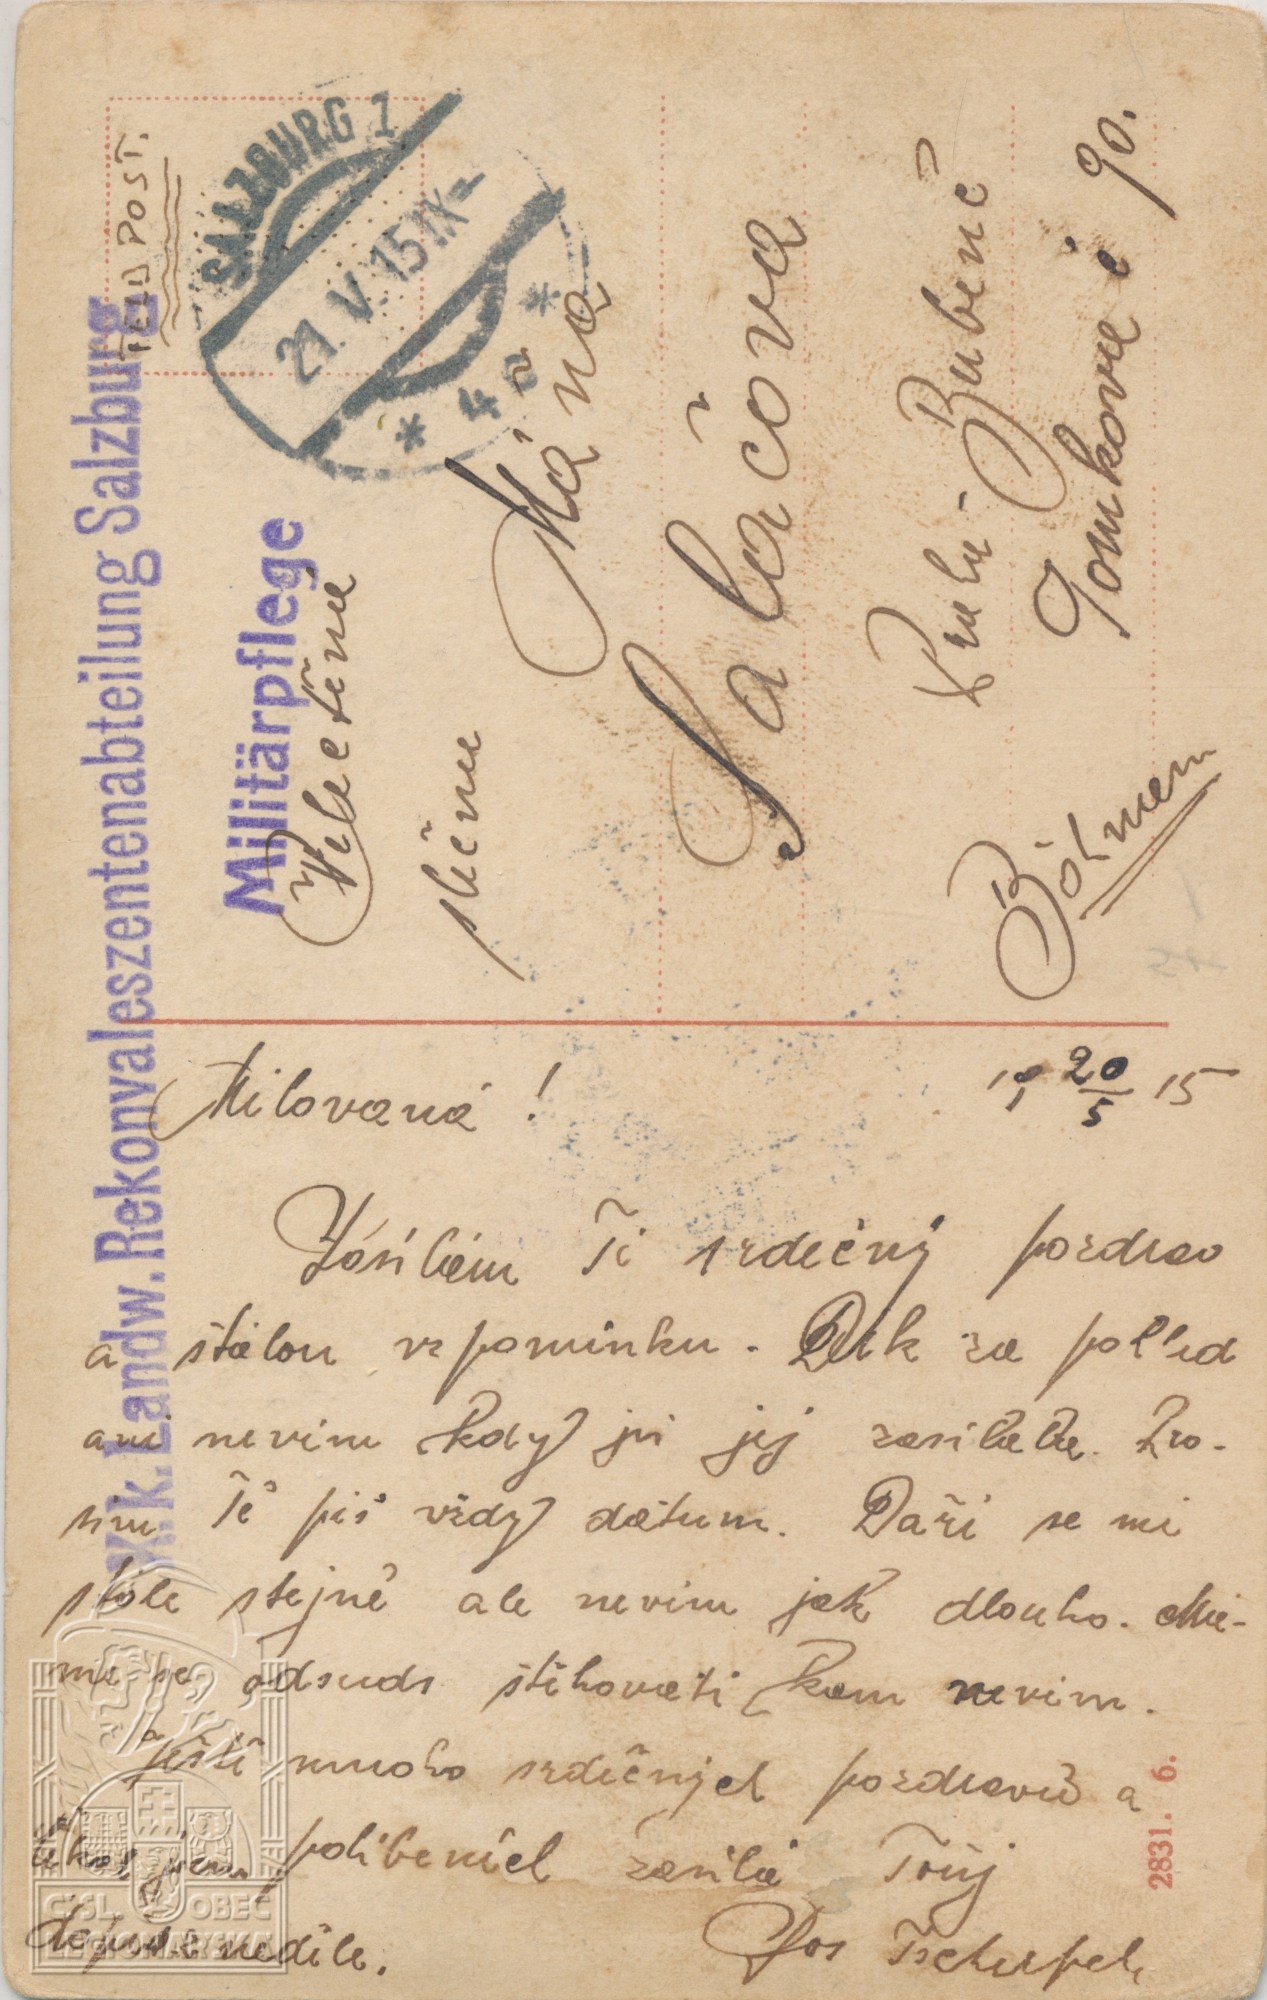 FELD POST.
SALZBURG 1
21. V. 15 IX
* 4a *
K.k. Landw. Rekonvaleszentenabteilung Salzburg
Militärpflege
slečna
Máňa
Salačova
Praha-Bubeneč
Tomkova č 90.
Böhmen
Milovaná! 19 20/5 15
Zasílám Ti srdečný pozdrav
a stálou vzpomínku. Dík za pohled
ani nevím kdy jsi jej zasílala. Pro-
sím Tě piš vždy datum. Daří se mi
stále stejně ale nevím jak dlouho. Má-
me se odsud stěhovati kam nevím.
Ještě mnoho srdečných pozdravů a
políbeních zasílá Tvůj
neděle. Jos
ČSL. OBEC
LEGIONÁŘSKÁ
2831. 6.